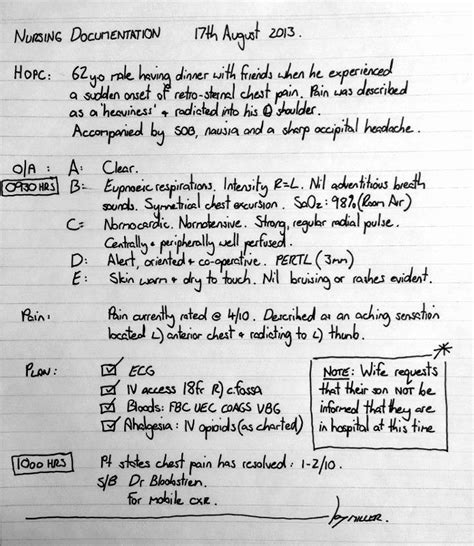 NURSING DOCUMENTATION 17th August 2013.
HOPC: 62yo male having dinner with friends when he experienced
a sudden onset of retro-sternal chest pain. Pain was described
as a 'heaviness' + radiated into his Ⓛ shoulder.
Accompanied by SOB, nausia and a sharp occipital headache.
O/A: A: Clear.
0930 HRS B: Eupnoeic respirations. Intensity R=L. Nil adventitious breath
sounds. Symmetrical chest excursion. SaO2: 98% (Room Air)
C: Normocardic. Normotensive. Strong, regular radial pulse.
Centrally + peripherally well perfused.
D: Alert, oriented + co-operative. PERTL (3mm)
E: Skin warm + dry to touch. Nil bruising or rashes evident.
Pain: Pain currently rated @ 4/10. Described as an aching sensation
located L) anterior chest + radiating to L) thumb.
PLAN: ☑ ECG
☑ IV access 18fr R) c.fossa
☑ Bloods: FBC UEC COAGS VBG
☑ Analgesia: IV opioids (as charted)
NOTE: Wife requests
that their son NOT be
informed that they are
in hospital at this time
1000 HRS Pt states chest pain has resolved: 1-2/10.
S/B Dr Bloobstien.
For mobile CXR.
MILLER.